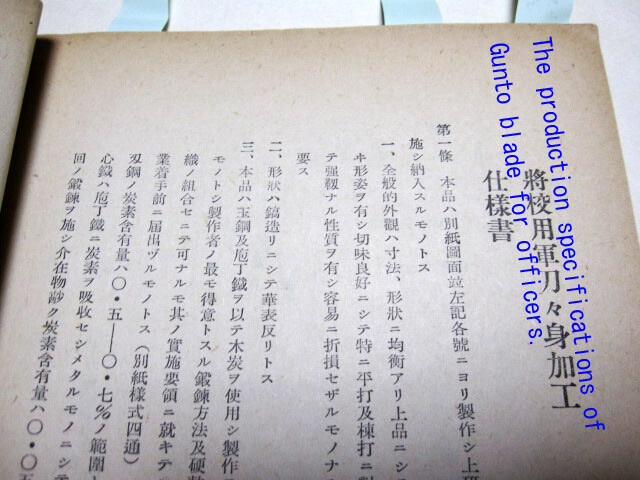 The production specifications of
Gunto blade for officers.
將校用軍刀々身加工
仕樣書
第一條 本品ハ別紙圖面竝左記各號ニヨリ製作シ上
施シ納入スルモノトス
一、全般的外觀ハ寸法、形狀ニ均衡アリ上品ニシ
キ形姿ヲ有シ切味良好ニシテ特ニ平打及棟打ニ
テ強靱ナル性質ヲ有シ容易ニ折損セザルモノナ
要ス
二、形狀ハ鎬造リニシテ華表反リトス
三、本品ハ玉鋼及庖丁鐵ヲ以テ木炭ヲ使用シ製作
モノトシ製作者ノ最モ得意トスル鍛鍊方法及硬
織ノ組合セニテ可ナルモ其ノ實施要領ニ就キテ
業着手前ニ届出ヅルモノトス(別紙樣式四通)
刄鋼ノ炭素含有量ハ〇・五—〇・七%ノ範圍
心鐵ハ庖丁鐵ニ炭素ヲ吸收セシメタルモノニシテ
回ノ鍛鍊ヲ施シ介在物尠ク炭素含有量ハ〇・〇五